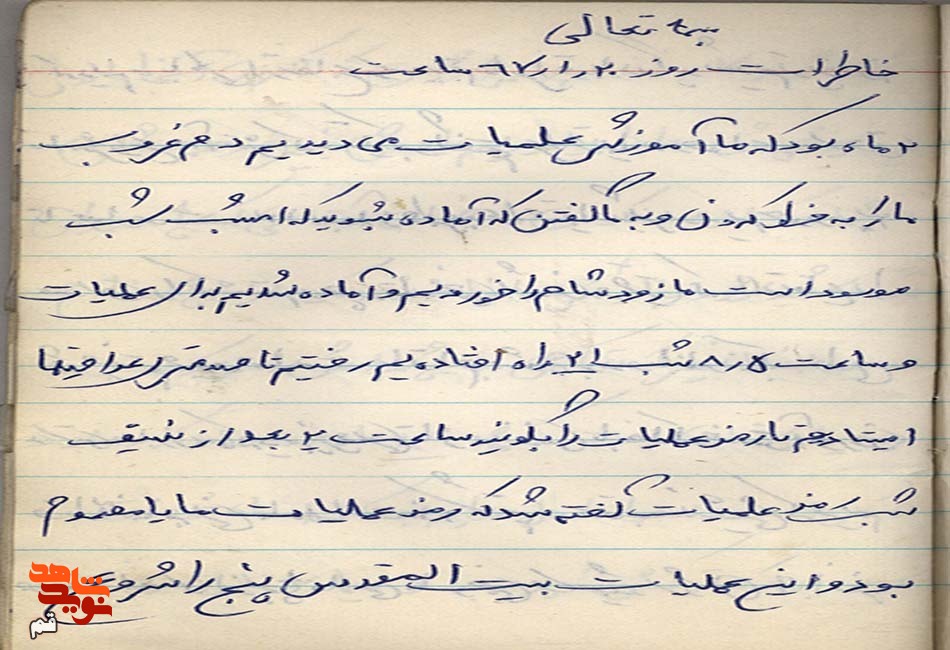 بسمه تعالی
خاطرات روز ۲۰ر۱ر۶۷ ساعت
۲ ماه بود که ما آموزش عملیات می دیدیم دم غروب
ما را به خط کردن و به ما گفتن که آماده شوید که امشب شب
موعود است ما زود شام را خوردیم و آماده شدیم برای عملیات
و ساعت ۸ر۵ شب ۲۱ براه افتادیم رفتیم تا متری عراقیها
ایستادیم تا رمز عملیات را بگویند ساعت ۲ بعد از نصف
شب رمز عملیات گفته شد که رمز عملیات ما یا
بود و این عملیات بیت المقدس پنج را شروع
نوید شاهد
قم